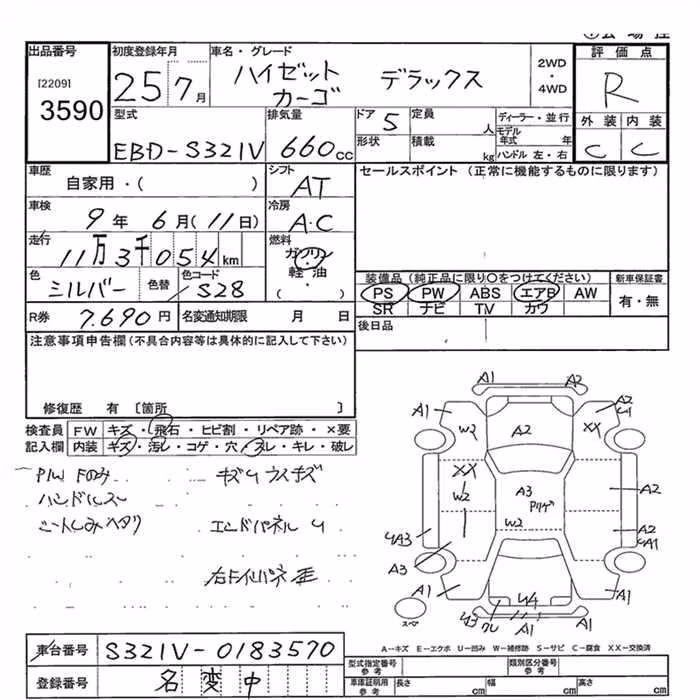 出品番号
[2209]
3590
初度登録年月
25 7月
車名・グレード
ハイゼット
カーゴ
デラックス
2WD
・
4WD
評価点
R
外装 内装
C C
型式
EBD-S321V
排気量
660cc
ドア 5
定員 人
ディーラー・並行
モデル年式 年
形状
積載 kg
ハンドル 左・右
車歴
自家用・( )
シフト
AT
セールスポイント(正常に機能するものに限ります)
車検
9年 6月(11日)
冷房
A・C
走行
11万3千054km
燃料
ガソリン
・
軽油
・
( )
色
シルバー
色替
色コード
S28
装備品(純正品に限り○をつけてください)
新車保証書
PS PW ABS エアB AW
SR ナビ TV カワ
有・無
R券 7.690円
名変通知期限 月 日
後日品
注意事項申告欄(不具合内容等は具体的に記入して下さい)
修復歴 有 〔箇所 〕
検査員 FW キズ・飛石・ヒビ割・リペア跡・×要
記入欄 内装 キズ・汚レ・コゲ・穴・スレ・キレ・破レ
P/W Fのみ
ハンドルスレ
シートしみヘタリ
キズUウスキズ
エンドパネル U
A1 A2
A1 A2
U1
W2 A2 XX
XX
W2 A3 A2
W2
UA3 A2
UA1
A3
A1 U4 A1
U3 A1
スペア
A-キズ E-エクボ U-凹み W-補修跡 S-サビ C-腐食 XX-交換済
車台番号 S321V-0183570
登録番号 名変中
型式指定番号
参考
類別区分番号
参考
車庫証明用
参考
長さ cm
幅 cm
高さ cm